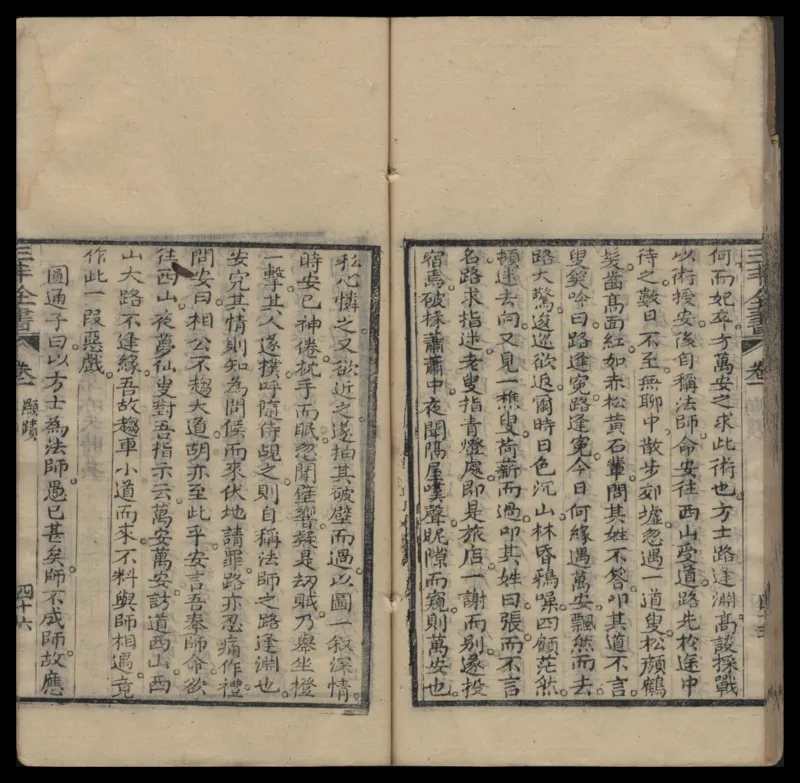 何而妃卒方萬安之求此術也方士路逢淵高設探戰
以術授安後自稱法師命安往西山受道路先於途中
待之數日不至無聊中散步郊墟忽遇一道叟松顏鶴
髮齒高面紅如赤松黃石輩問其姓不答叩其道不言
叟笑吟曰路逢冤路逢冤今日何緣遇萬安飄然而去
路大驚逡巡欲返爾時日色沉山林昏鴉噪四顧茫然
頓迷去向又見一樵叟荷薪而過叩其姓曰張而不言
名路求指迷老叟指青燈處即是旅店一謝而別遂投
宿焉破牀蕭蕭中夜聞隔屋嘆聲昵隙而窺則萬安也
私心憐之又欲近之遂抽其破壁而過以圖一敘深情
時安已神倦枕手而眠忽聞壁響疑是刼賊乃舉坐橙
一擊其人遂撲呼隨侍覘之則自稱法師之路逢淵也
安究其情則知為問候而來伏地請罪路亦忍痛作禮
問安曰相公不趨大道胡亦至此平安言吾奉師命欲
往西山夜夢仙叟對吾指示云萬安萬安訪道西山西
山大路不逢緣吾故趨車小道而來不料與師相遇竟
作此一段惡戲
圓通子曰以方士為法師愚已甚矣師不成師故應
三丰全書
卷一
顯蹟
四十六